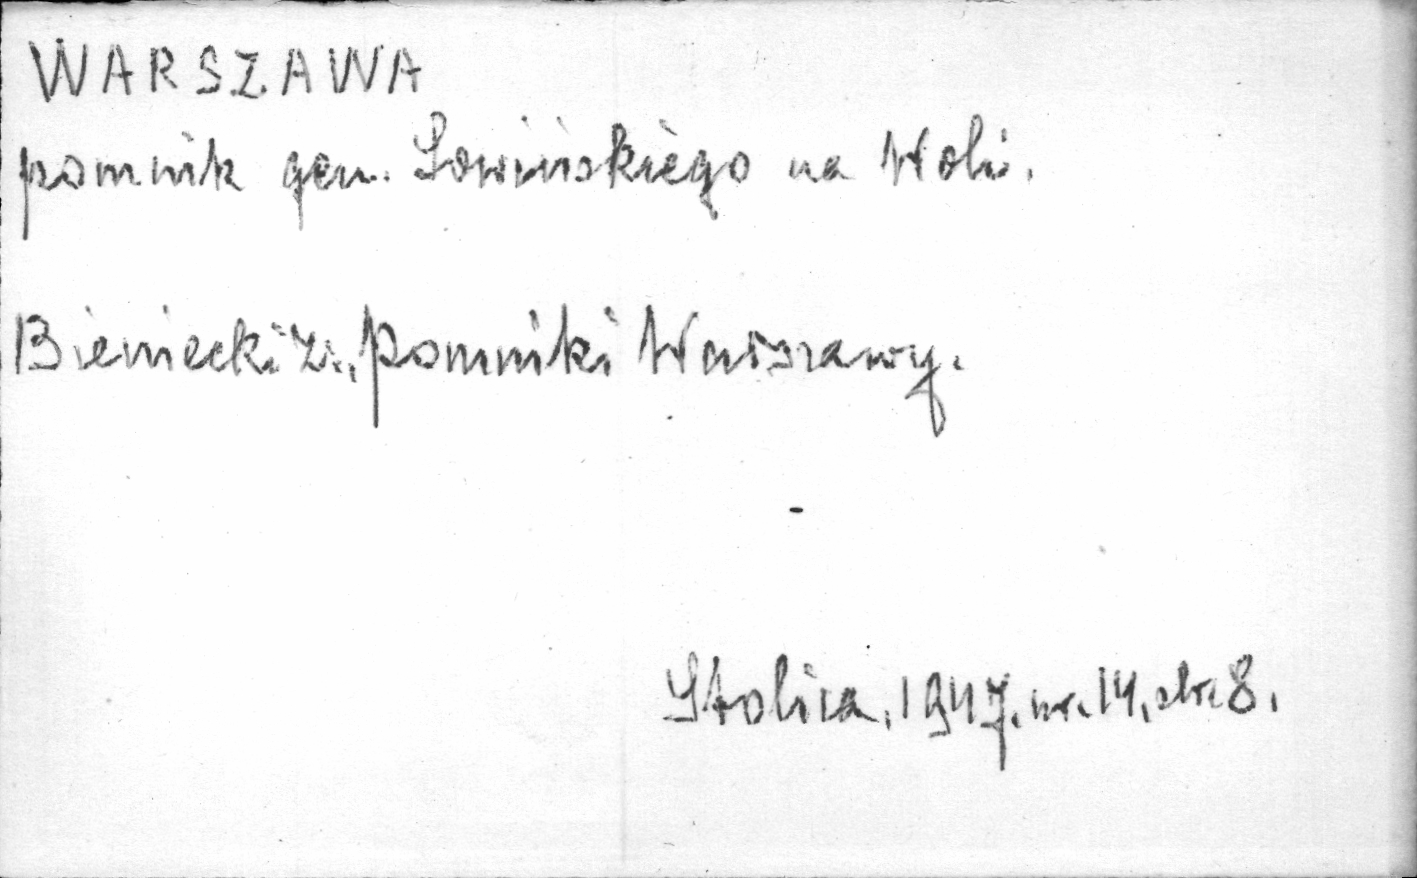 WARSZAWA
pomnik gen. Sowińskiego na Woli.
Bieniecki Zdz., Pomniki Warszawy.
Stolica, 1947, nr. 14, str. 8.